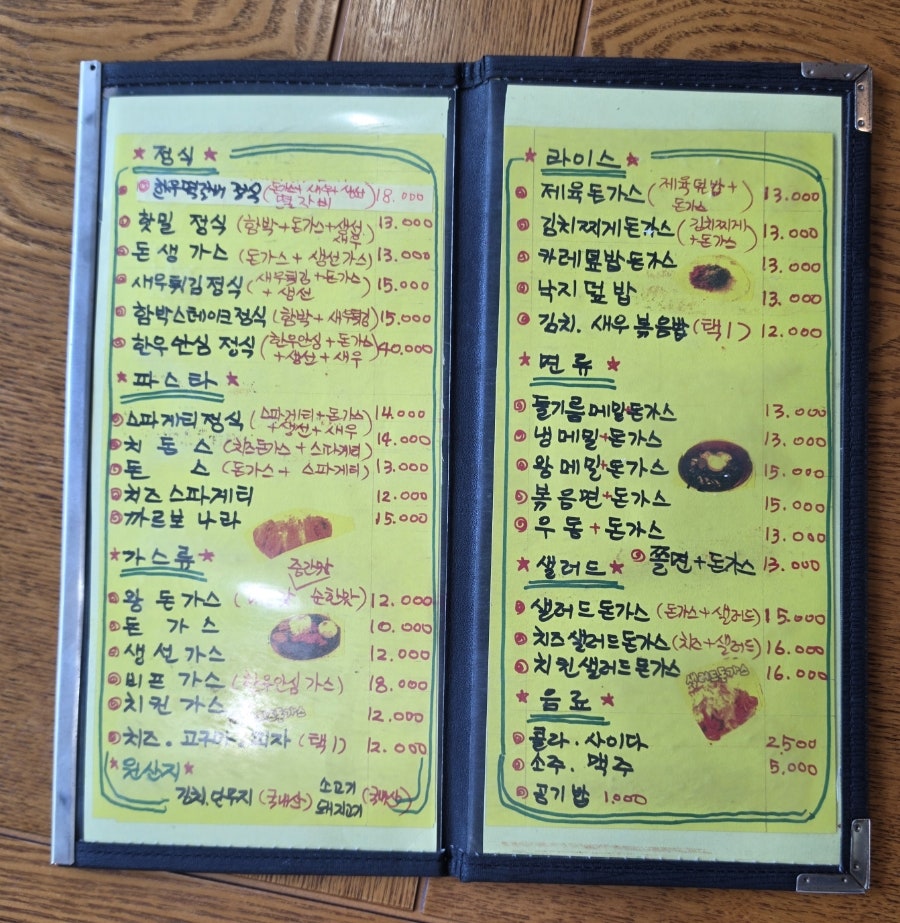 ★ 정식 ★
한우떡갈비 정식 (돈까스 새우 생선 떡갈비) 18.000
핫밀 정식 (함박+돈가스+생선 새우) 13.000
돈생가스 (돈가스 + 생선가스) 13.000
새우튀김정식 (새우튀김+돈가스 + 생선) 15.000
함박스테이크정식 (함박 + 새우튀김) 15.000
한우안심 정식 (한우안심 + 돈가스 +생선 + 새우) 40.000
★ 파스타 ★
스파게티정식 (스파게티+돈가스 +생선 + 새우) 14.000
치돈스 (치즈돈가스 + 스파게티) 14.000
돈 스 (돈가스 + 스파게티) 13.000
치즈스파게티 12.000
까르보나라 15.000
★ 가스류 ★
중간맛
왕돈가스 ( 순한맛) 12.000
돈 가스 10.000
생선가스 12.000
비프가스 (한우안심가스) 18.000
치킨가스 12.000
치즈. 고구마 피자 (택1) 12.000
★ 원산지 ★
김치.단무지 (국내산) 소고기 돼지고기 (국내산)
★ 라이스 ★
제육돈가스 (제육덮밥+ 돈가스) 13.000
김치찌게돈가스 (김치찌게 +돈가스) 13.000
카레덮밥돈가스 13.000
낙지덮밥 13.000
김치. 새우볶음밥 (택1) 12.000
★ 면류 ★
들기름메밀+돈가스 13.000
냉메밀+돈가스 13.000
왕메밀+돈가스 15.000
볶음면+돈가스 15.000
우동+돈가스 13.000
쫄면+돈가스 13.000
★ 샐러드 ★
샐러드돈가스 (돈가스+샐러드) 15.000
치즈샐러드돈가스 (치즈+샐러드) 16.000
치킨샐러드돈가스 16.000
샐러드돈가스
★ 음료 ★
콜라. 사이다 2,500
소주. 맥주 5,000
공기밥 1.000